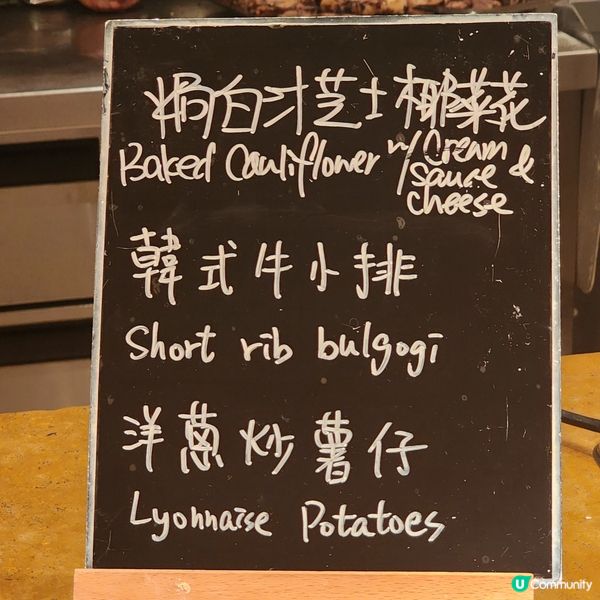 奶白汁芝士椰菜花
Baked Cauliflower w/ Cream
sauce &
cheese
韓式牛小排
Short rib bulgogi
洋蔥炒薯仔
Lyonnaise Potatoes
U Community